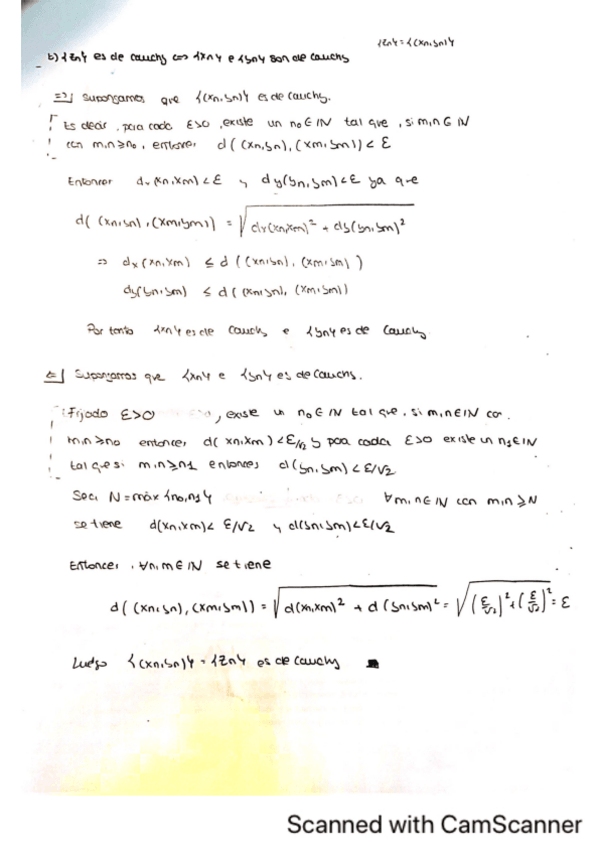 {zn} = {(xn, yn)}
b) {zn} es de cauchy <=> {xn} e {yn} son de cauchy
=>] Supongamos que {(xn, yn)} es de cauchy.
Es decir, para cada ε>0, existe un n0 ∈ IN tal que, si m,n ∈ IN
con m,n ≥ n0, entonces d((xn,yn),(xm,ym)) < ε
Entonces dx(xn,xm) < ε y dy(yn,ym) < ε ya que
d((xn,yn),(xm,ym)) = √(dx(xn,xm)² + dy(yn,ym)²)
=> dx(xn,xm) ≤ d((xn,yn),(xm,ym))
dy(yn,ym) ≤ d((xn,yn),(xm,ym))
Por tanto {xn} es de cauchy e {yn} es de cauchy.
<=] Supongamos que {xn} e {yn} es de cauchy.
Fijado ε>0, existe un n0 ∈ IN tal que, si m,n ∈ IN con
m,n ≥ n0 entonces d(xn,xm) < ε/√2 y para cada ε>0 existe un n1 ∈ IN
tal que si m,n ≥ n1 entonces d(yn,ym) < ε/√2
Sea N = máx {n0,n1} ∀m,n ∈ IN con m,n ≥ N
se tiene d(xn,xm) < ε/√2 y d(yn,ym) < ε/√2
Entonces, ∀n,m ∈ IN se tiene
d((xn,yn),(xm,ym)) = √(d(xn,xm)² + d(yn,ym)²) = √((ε/√2)² + (ε/√2)²) = ε
Luego {(xn,yn)} = {zn} es de cauchy ■
Scanned with CamScanner